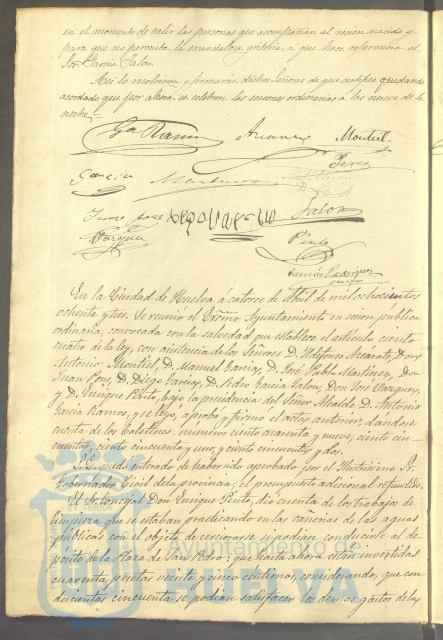 en el momento de salir las personas que acompañan al recien nacido y
para que no permita la escandalosa griteria, á que hace referencia el
Sor. Garcia Jalon.
Asi lo resolvieron y firmarán dichos Señores de que certifico, quedando
acordado que por ahora se celebren las sesiones ordinarias á las nueve de la
noche
Ga Ramos Azcarate Montiel.
Perez
Garcia Martinez
Juan Pons Jalon
Vazquez Pinto
En la Ciudad de Huelva á catorce de Abril de mil ochocientos
ochenta y tres. Se reunió el Excmo Ayuntamiento en sesion publica
ordinaria, convocada con la salvedad que establece el artículo ciento
cuatro de la ley, con asistencia de los Señores D. Ildefonso Azcarate, Don
Antonio Montiel, D. Manuel Garcia, D. José Pablo Martinez, Don
Juan Pons, D. Diego Garcia, D. Pedro Garcia Jalon, Don José Vazquez,
y D. Enrique Pinto, bajo la presidencia del Señor Alcalde D. Antonio
Garcia Ramos, y se leyó, aprobó y firmó el acta anterior, dandose
cuenta de los Boletines números ciento cuarenta y nueve, ciento cin-
cuenta, ciento cincuenta y uno, y ciento cincuenta y dos.
S. E. quedó enterado de haber sido aprobado por el Ilustrísimo Sr.
Gobernador Civil de la provincia, el presupuesto adicional refundido.
El Sr. Concejal Don Enrique Pinto, dió cuenta de los trabajos de
limpieza que se estaban practicando en las cañerias de las aguas
públicas con el objeto de cerciorarse si podian conducirse al de-
pósito de la Plaza de San Pedro; que hasta ahora están invertidas
cuarenta pesetas veinte y cinco centimos, considerando, que con
doscientas cincuenta se podian satisfacer los demas gastos de las
Ayuntamiento de
HUELVA